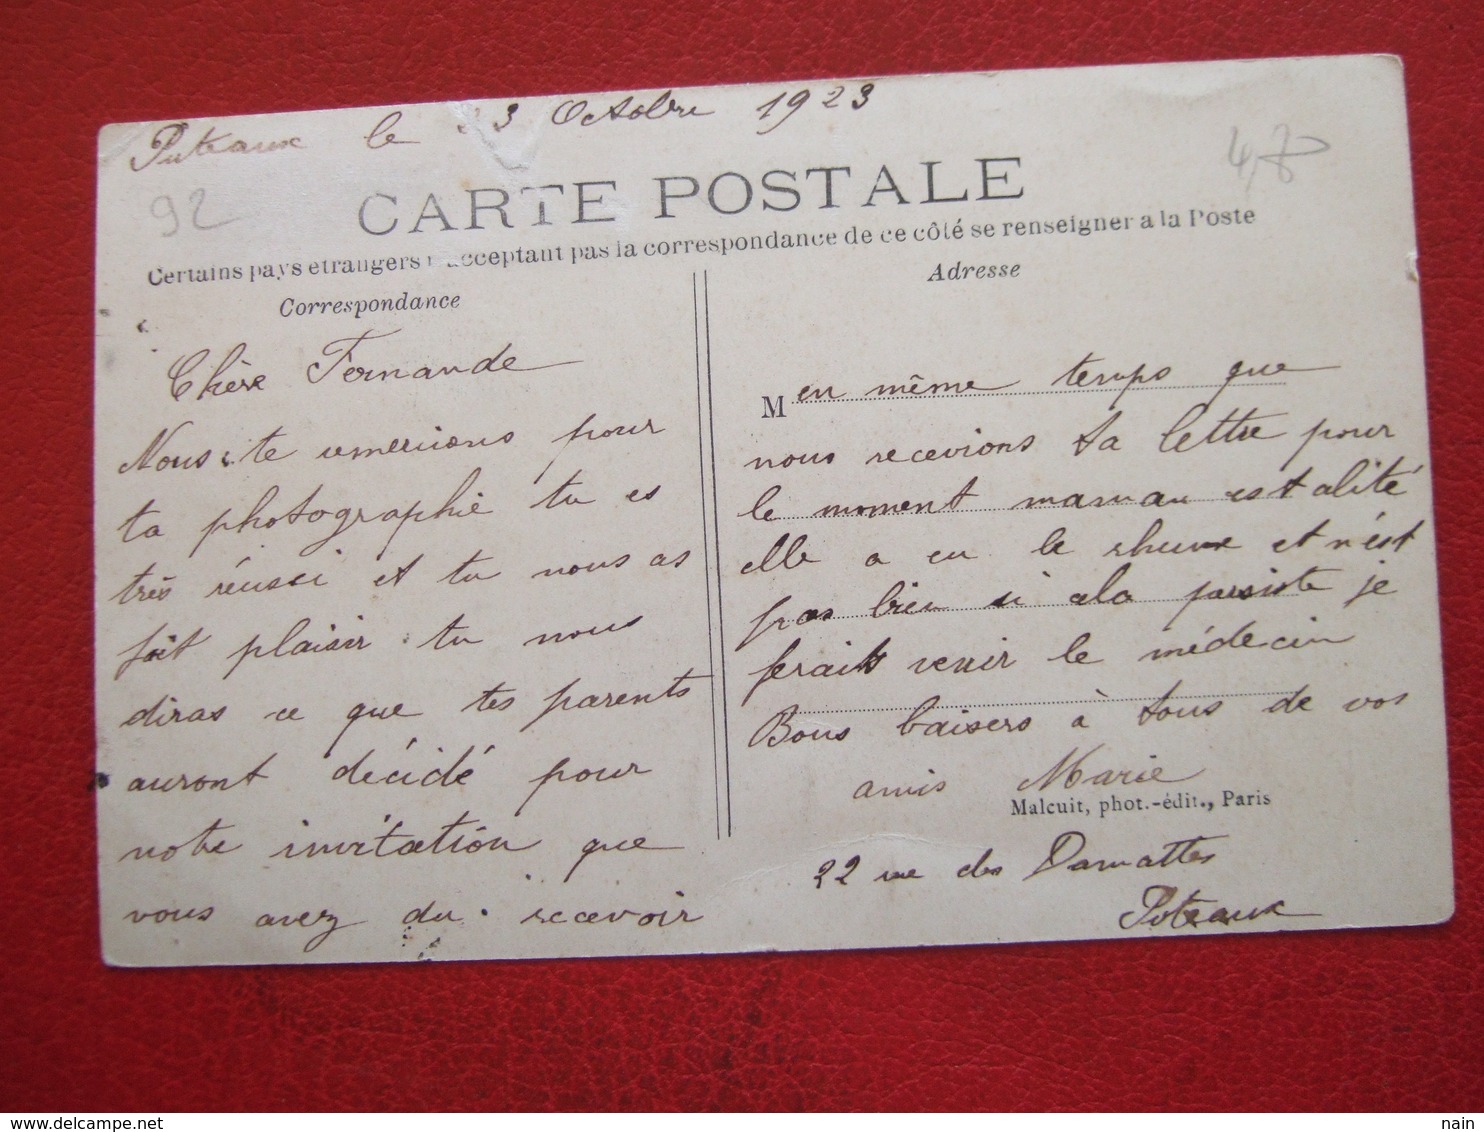 Puteaux le 3 Octobre 1923
92
4,70
CARTE POSTALE
Certains pays étrangers n'acceptant pas la correspondance de ce côté se renseigner a la Poste
Correspondance
Adresse
Chère Fernande
Nous te remercions pour
ta photographie tu es
très réussi et tu nous as
fait plaisir tu nous
diras ce que tes parents
auront décidé pour
notre invitation que
vous avez du recevoir
M en même temps que
nous recevions ta lettre pour
le moment maman est alité
elle a eu le rhume et n'est
pas bien si cela persiste je
ferait venir le médecin
Bons baisers à tous de vos
amis Marie
Malcuit, phot.-édit., Paris
22 rue des Damattes
Puteaux
delcampe.net
nain